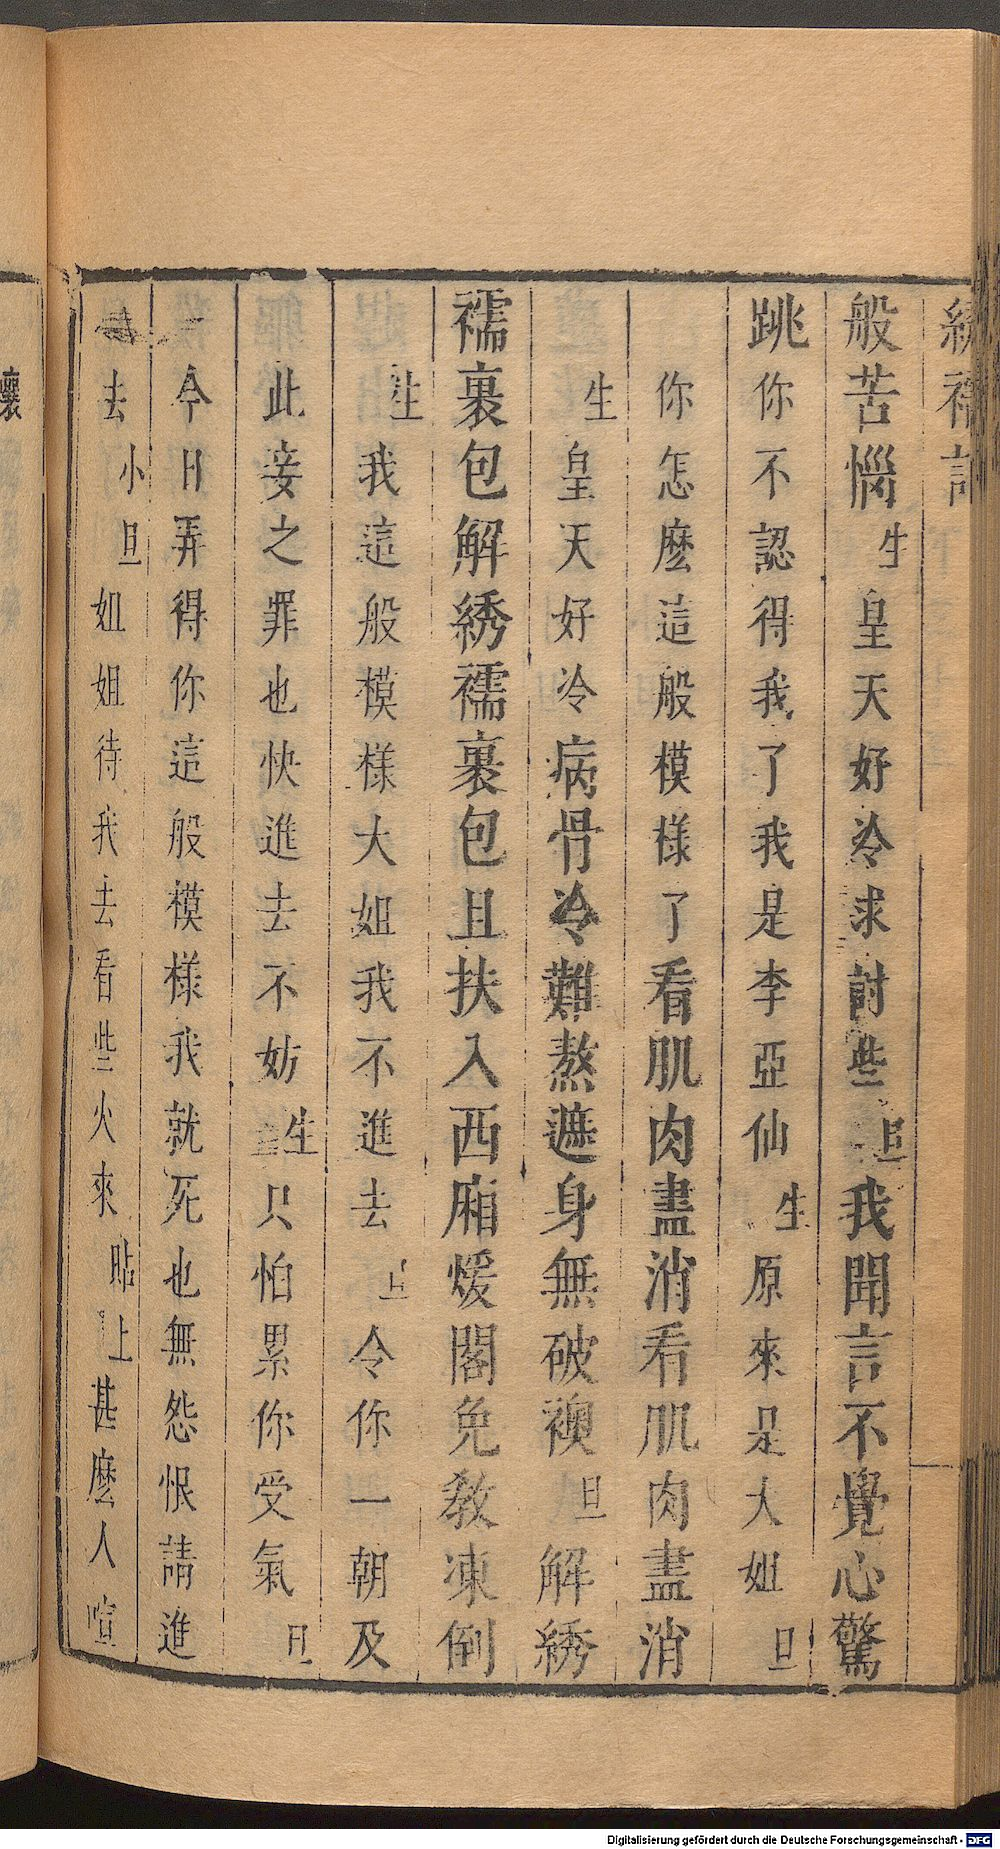 綉襦記
般苦惱生皇天好冷求討些旦我聞言不覺心驚
跳你不認得我了我是李亞仙生原來是大姐旦
你怎麽這般模樣了看肌肉盡消看肌肉盡消
生皇天好冷病骨冷難熬遮身無破襖旦解綉
襦裹包解綉襦裹包且扶入西廂煖閣免教凍倒
生我這般模樣大姐我不進去旦令你一朝及
此妾之罪也快進去不妨生只怕累你受氣旦
今日弄得你這般模樣我就死也無怨恨請進
去小旦姐姐待我去看些火來貼上甚麽人喧
Digitalisierung gefördert durch die Deutsche Forschungsgemeinschaft - DFG